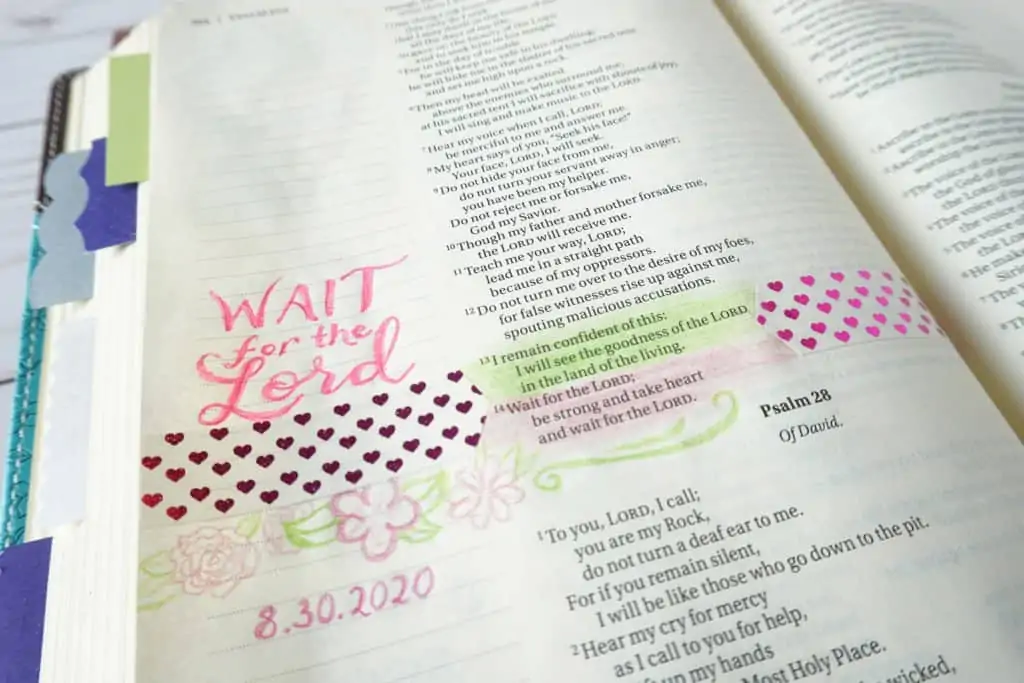 WAIT
for the
Lord
8.30.2020
all the days of my life,
to gaze on the beauty of the LORD
and to seek him in his temple.
5 For in the day of trouble
he will keep me safe in his dwelling;
he will hide me in the shelter of his sacred tent
and set me high upon a rock.
6 Then my head will be exalted
above the enemies who surround me;
at his sacred tent I will sacrifice with shouts of joy;
I will sing and make music to the LORD.
7 Hear my voice when I call, LORD;
be merciful to me and answer me.
8 My heart says of you, "Seek his face!"
Your face, LORD, I will seek.
9 Do not hide your face from me,
do not turn your servant away in anger;
you have been my helper.
Do not reject me or forsake me,
God my Savior.
10 Though my father and mother forsake me,
the LORD will receive me.
11 Teach me your way, LORD;
lead me in a straight path
because of my oppressors.
12 Do not turn me over to the desire of my foes,
for false witnesses rise up against me,
spouting malicious accusations.
13 I remain confident of this:
I will see the goodness of the LORD
in the land of the living.
14 Wait for the LORD;
be strong and take heart
and wait for the LORD.
Psalm 28
Of David.
1 To you, LORD, I call;
you are my Rock,
do not turn a deaf ear to me.
For if you remain silent,
I will be like those who go down to the pit.
2 Hear my cry for mercy
as I call to you for help,
up my hands
Most Holy Place.
wicked,
Ascribe
3 The voice
the God of
The voice of
5 The voice
6 He makes